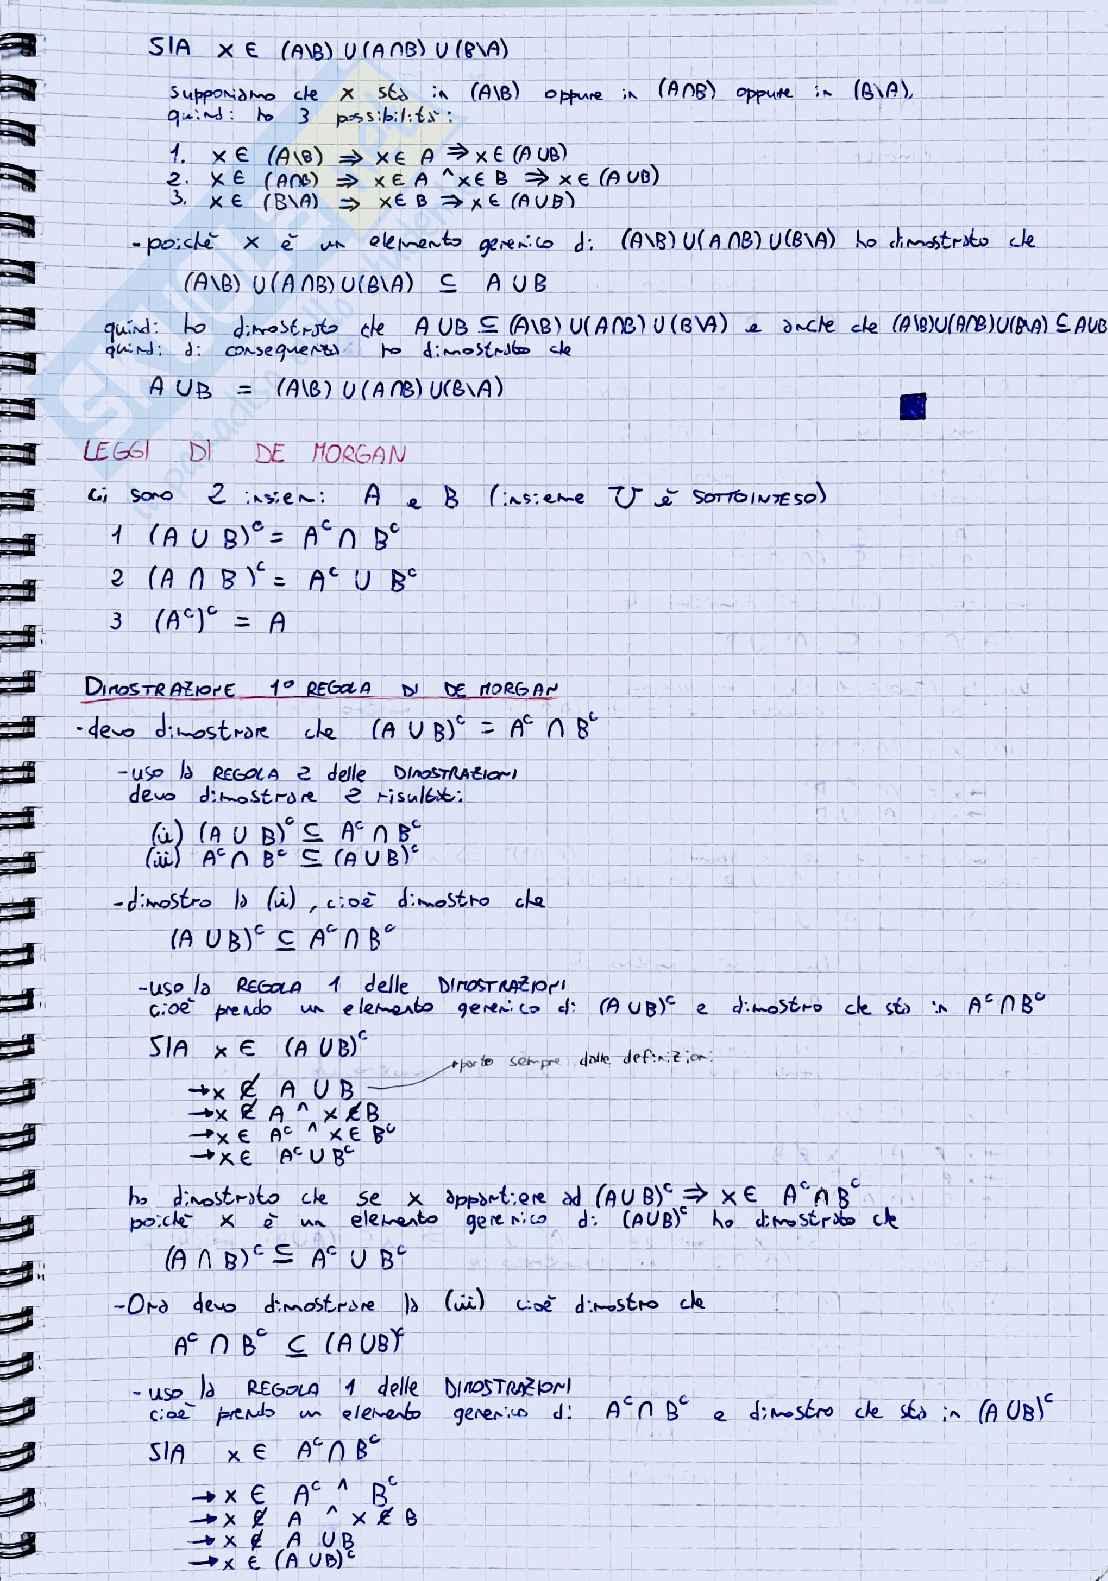 SIA x ∈ (A\B) ∪ (A∩B) ∪ (B\A)
supponiamo che x sta in (A\B) oppure in (A∩B) oppure in (B\A),
quindi ho 3 possibilità:
1. x ∈ (A\B) ⇒ x ∈ A ⇒ x ∈ (A∪B)
2. x ∈ (A∩B) ⇒ x ∈ A ^ x ∈ B ⇒ x ∈ (A∪B)
3. x ∈ (B\A) ⇒ x ∈ B ⇒ x ∈ (A∪B)
-poichè x è un elemento generico di (A\B) ∪ (A∩B) ∪ (B\A) ho dimostrato che
(A\B) ∪ (A∩B) ∪ (B\A) ⊆ A ∪ B
quindi ho dimostrato che A∪B ⊆ (A\B) ∪ (A∩B) ∪ (B\A) e anche che (A\B)∪(A∩B)∪(B\A) ⊆ A∪B
quindi di conseguenza ho dimostrato che
A ∪ B = (A\B) ∪ (A∩B) ∪ (B\A)
LEGGI DI DE MORGAN
Ci sono 2 insiemi A e B (insieme U è SOTTOINTESO)
1 (A ∪ B)ᶜ = Aᶜ ∩ Bᶜ
2 (A ∩ B)ᶜ = Aᶜ ∪ Bᶜ
3 (Aᶜ)ᶜ = A
DIMOSTRAZIONE 1° REGOLA DI DE MORGAN
-devo dimostrare che (A ∪ B)ᶜ = Aᶜ ∩ Bᶜ
-uso la REGOLA 2 delle DIMOSTRAZIONI
devo dimostrare 2 risultati:
(i) (A ∪ B)ᶜ ⊆ Aᶜ ∩ Bᶜ
(ii) Aᶜ ∩ Bᶜ ⊆ (A ∪ B)ᶜ
-dimostro la (i), cioè dimostro che
(A ∪ B)ᶜ ⊆ Aᶜ ∩ Bᶜ
-uso la REGOLA 1 delle DIMOSTRAZIONI
cioè prendo un elemento generico di (A∪B)ᶜ e dimostro che sta in Aᶜ∩Bᶜ
SIA x ∈ (A ∪ B)ᶜ
parto sempre dalle definizioni
→ x ∉ A ∪ B
→ x ∉ A ^ x ∉ B
→ x ∈ Aᶜ ^ x ∈ Bᶜ
→ x ∈ Aᶜ ∪ Bᶜ
ho dimostrato che se x appartiene ad (A∪B)ᶜ ⇒ x ∈ Aᶜ∩Bᶜ
poichè x è un elemento generico di (A∪B)ᶜ ho dimostrato che
(A ∩ B)ᶜ ⊆ Aᶜ ∪ Bᶜ
-Ora devo dimostrare la (ii) cioè dimostro che
Aᶜ ∩ Bᶜ ⊆ (A ∪ B)ᶜ
-uso la REGOLA 1 delle DIMOSTRAZIONI
cioè prendo un elemento generico di Aᶜ∩Bᶜ e dimostro che sta in (A ∪ B)ᶜ
SIA x ∈ Aᶜ ∩ Bᶜ
→ x ∈ Aᶜ ^ Bᶜ
→ x ∉ A ^ x ∉ B
→ x ∉ A ∪ B
→ x ∈ (A ∪ B)ᶜ